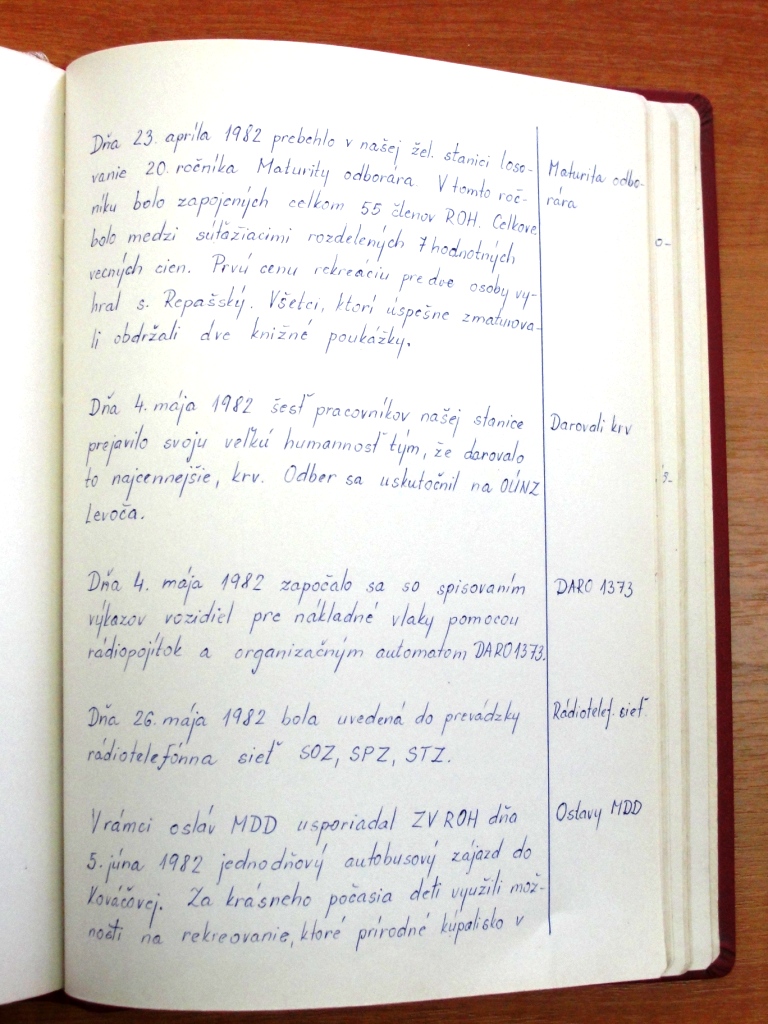 Dňa 23. apríla 1982 prebehlo v našej žel. stanici loso-
vanie 20. ročníka Maturity odborára. V tomto roč-
níku bolo zapojených celkom 55 členov ROH. Celkove
bolo medzi súťažiacimi rozdelených 7 hodnotných
vecných cien. Prvú cenu rekreáciu pre dve osoby vy-
hral s. Repašský. Všetci, ktorí úspešne zmaturova-
li obdržali dve knižné poukážky.
Maturita odbo-
rára
Dňa 4. mája 1982 šesť pracovníkov našej stanice
prejavilo svoju veľkú humannosť tým, že darovalo
to najcennejšie, krv. Odber sa uskutočnil na OÚNZ
Levoča.
Darovali krv
Dňa 4. mája 1982 započalo sa so spisovaním
výkazov vozidiel pre nákladné vlaky pomocou
rádiopojítok a organizačným automatom DARO1373.
DARO 1373
Dňa 26. mája 1982 bola uvedená do prevádzky
rádiotelefónna sieť SOZ, SPZ, STZ.
Rádiotelef. sieť
V rámci osláv MDD usporiadal ZV ROH dňa
5. júna 1982 jednodňový autobusový zájazd do
Kováčovej. Za krásneho počasia deti využili mož-
nosti na rekreovanie, ktoré prírodné kúpalisko v
Oslavy MDD